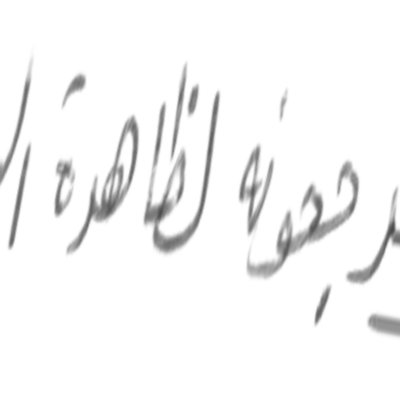 يرجعونه لظاهرة